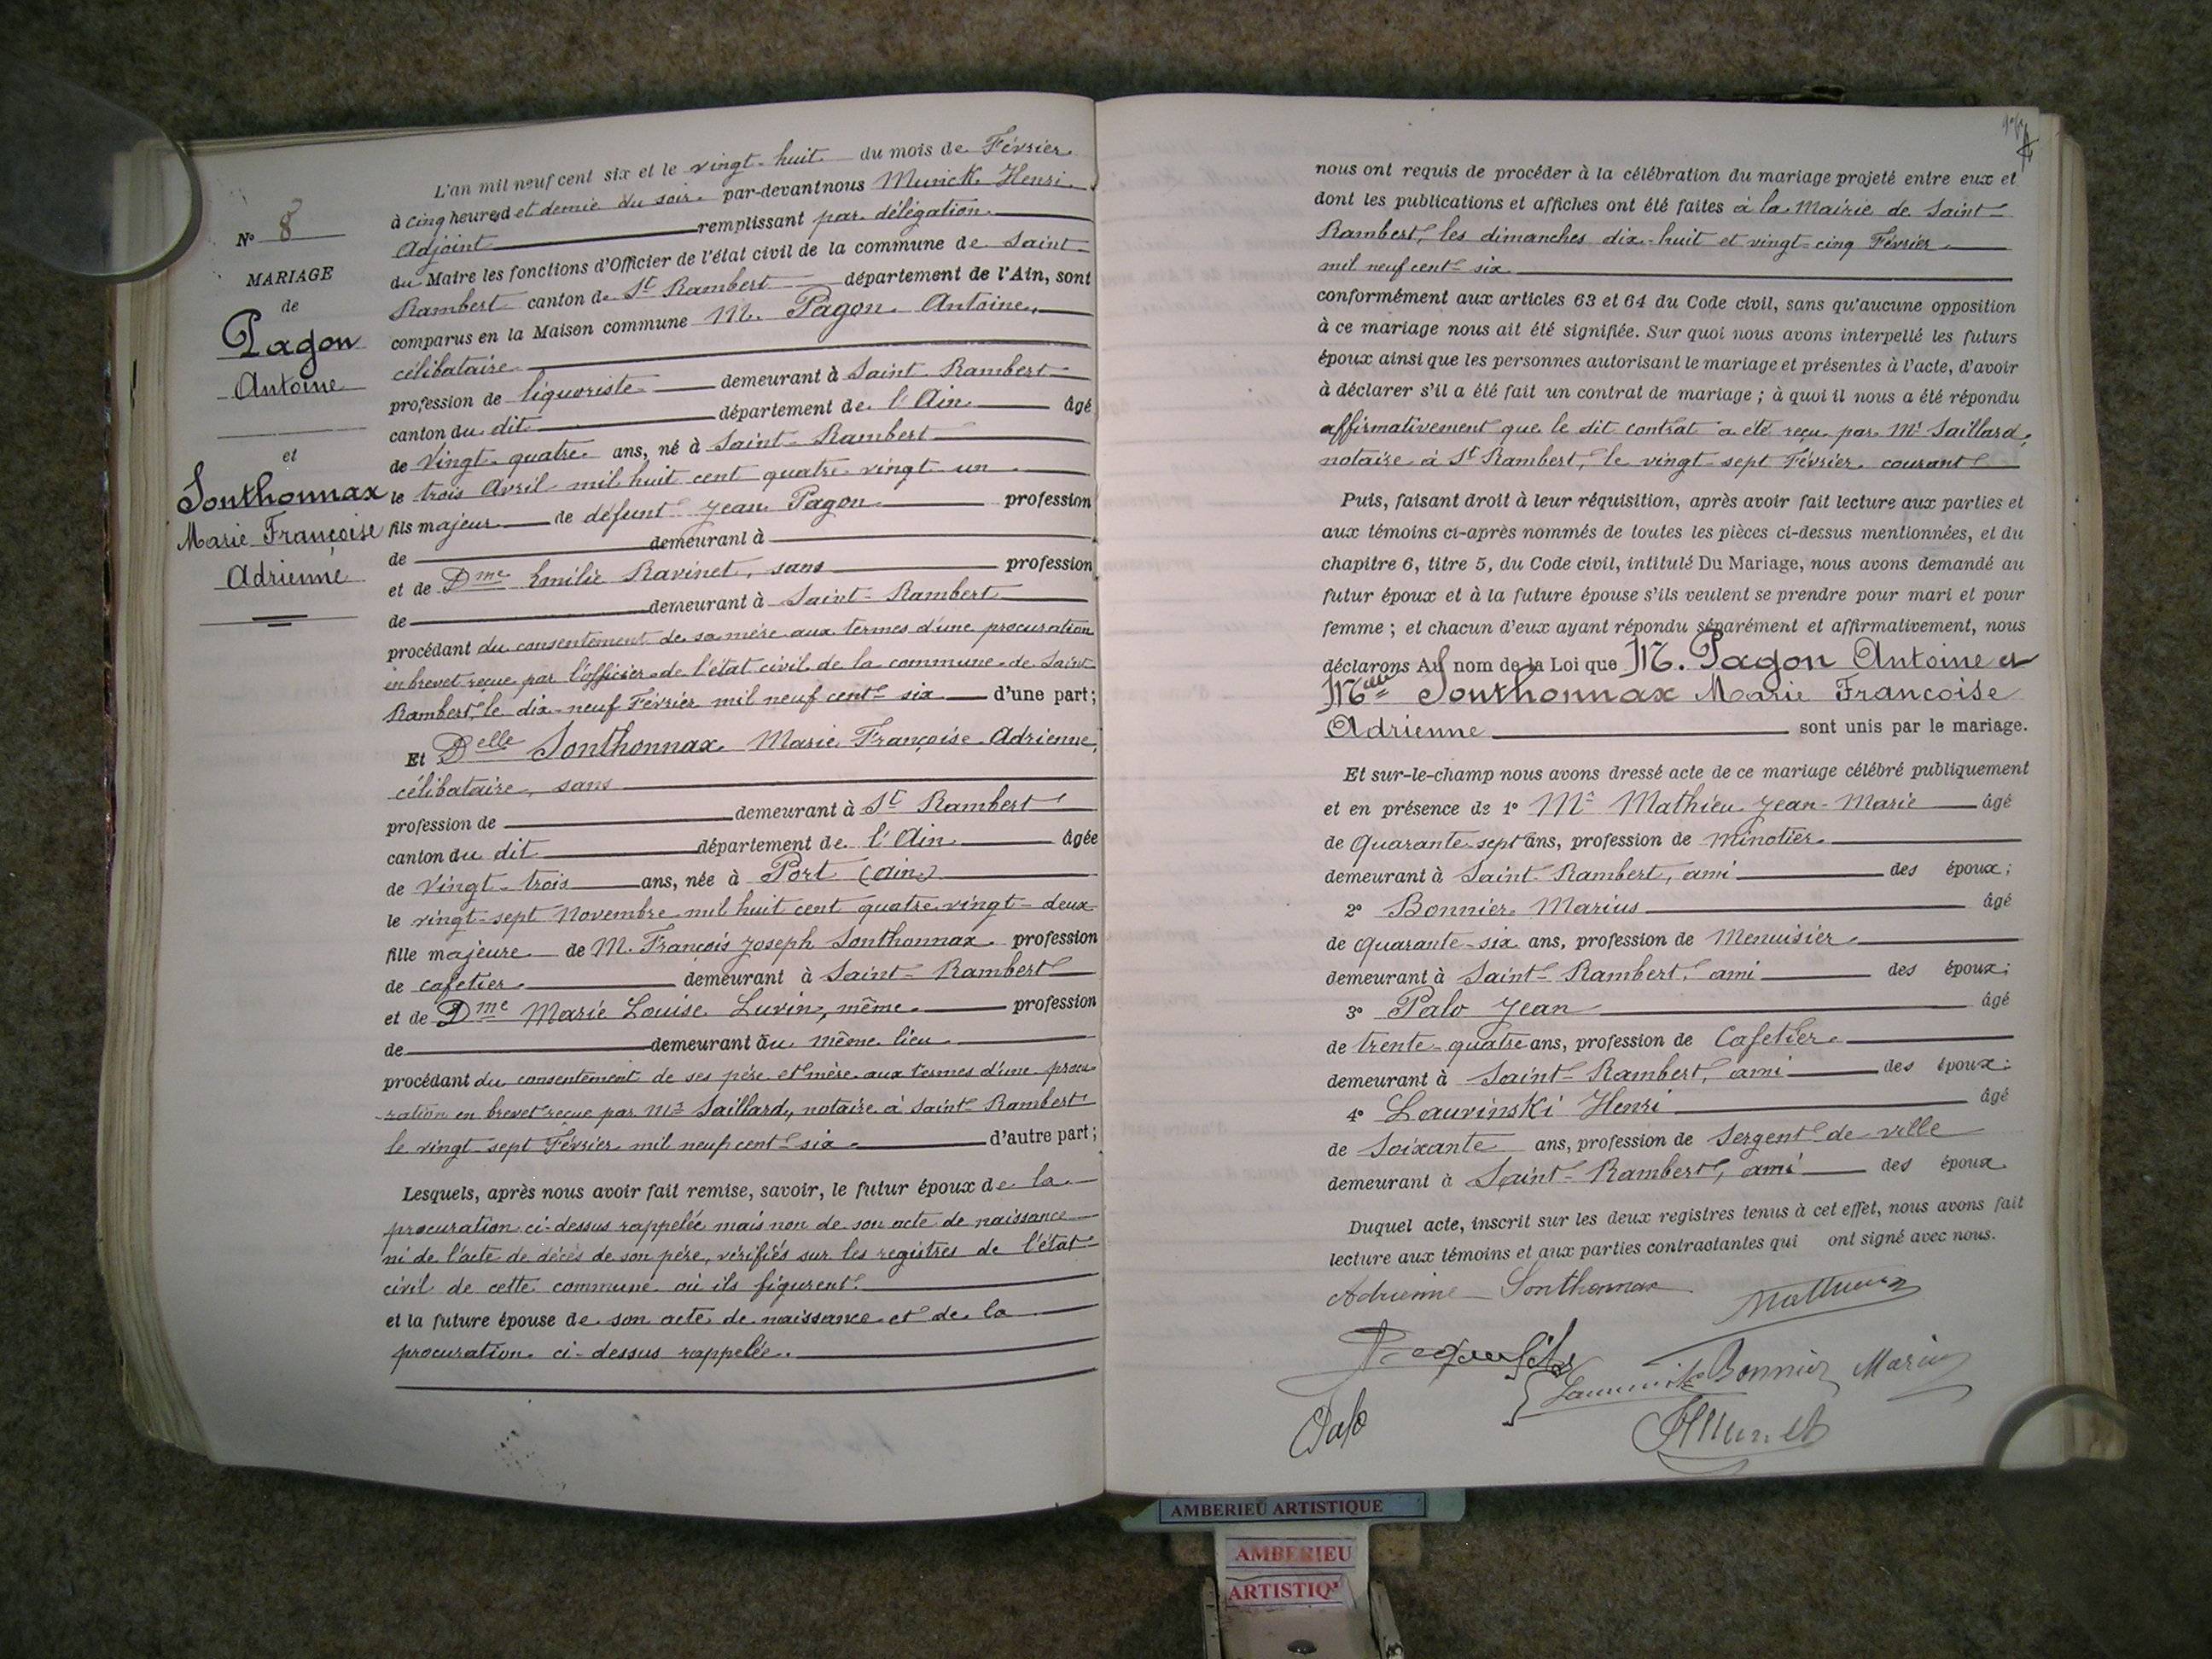 N° 8
MARIAGE
de
Pagon
Antoine
et
Sonthonnax
Marie Françoise
Adrienne
L'an mil neuf cent six et le vingt-huit du mois de Février
à cinq heures et demie du soir par-devant nous Munick Henri
Adjoint remplissant par délégation
du Maire les fonctions d'Officier de l'état civil de la commune de Saint
Rambert canton de St Rambert département de l'Ain, sont
comparus en la Maison commune M. Pagon Antoine,
célibataire
profession de liquoriste demeurant à Saint Rambert
canton du dit département de l'Ain âgé
de vingt-quatre ans, né à Saint-Rambert
le trois Avril mil huit cent quatre-vingt-un
fils majeur de défunt Jean Pagon profession
de demeurant à
et de Dme Emilie Ravinet, sans profession
de demeurant à Saint-Rambert
procédant du consentement de sa mère aux termes d'une procuration
en brevet reçue par l'officier de l'état civil de la commune de Saint
Rambert, le dix-neuf Février mil neuf cent six d'une part;
Et Delle Sonthonnax Marie Françoise Adrienne,
célibataire, sans
profession de demeurant à St Rambert
canton du dit département de l'Ain âgée
de vingt-trois ans, née à Port (Ain)
le vingt-sept Novembre mil huit cent quatre-vingt-deux
fille majeure de M. François Joseph Sonthonnax profession
de cafetier demeurant à Saint-Rambert
et de Dme Marie Louise Luvin, même profession
de demeurant au même lieu
procédant du consentement de ses père et mère aux termes d'une procu
ration en brevet reçue par Me Saillard, notaire à Saint-Rambert
le vingt-sept Février mil neuf cent six d'autre part;
Lesquels, après nous avoir fait remise, savoir, le futur époux de la
procuration ci-dessus rappelée mais non de son acte de naissance
ni de l'acte de décès de son père, vérifiés sur les registres de l'état
civil de cette commune où ils figurent.
et la future épouse de son acte de naissance et de la
procuration ci-dessus rappelée.
nous ont requis de procéder à la célébration du mariage projeté entre eux et
dont les publications et affiches ont été faites à la Mairie de Saint-
Rambert, les dimanches dix-huit et vingt-cinq Février
mil neuf cent six
conformément aux articles 63 et 64 du Code civil, sans qu'aucune opposition
à ce mariage nous ait été signifiée. Sur quoi nous avons interpellé les futurs
époux ainsi que les personnes autorisant le mariage et présentes à l'acte, d'avoir
à déclarer s'il a été fait un contrat de mariage ; à quoi il nous a été répondu
affirmativement que le dit contrat a été reçu par Me Saillard,
notaire à St Rambert, le vingt-sept Février courant
Puis, faisant droit à leur réquisition, après avoir fait lecture aux parties et
aux témoins ci-après nommés de toutes les pièces ci-dessus mentionnées, et du
chapitre 6, titre 5, du Code civil, intitulé Du Mariage, nous avons demandé au
futur époux et à la future épouse s'ils veulent se prendre pour mari et pour
femme ; et chacun d'eux ayant répondu séparément et affirmativement, nous
déclarons Au nom de la Loi que M. Pagon Antoine et
Melle Sonthonnax Marie Francoise
Adrienne sont unis par le mariage.
Et sur-le-champ nous avons dressé acte de ce mariage célébré publiquement
et en présence de 1° Mr Mathieu Jean-Marie âgé
de Quarante-sept ans, profession de Minotier
demeurant à Saint-Rambert, ami des époux;
2° Bonnier Marius âgé
de quarante-six ans, profession de Menuisier
demeurant à Saint-Rambert, ami des époux;
3° Palo Jean âgé
de trente-quatre ans, profession de Cafetier
demeurant à Saint-Rambert, ami des époux;
4° Laurinski Henri âgé
de Soixante ans, profession de Sergent de ville
demeurant à Saint-Rambert, ami des époux
Duquel acte, inscrit sur les deux registres tenus à cet effet, nous avons fait
lecture aux témoins et aux parties contractantes qui ont signé avec nous.
Adrienne Sonthonnax
Bonnier Marius
Palo
AMBERIEU ARTISTIQUE
AMBERIEU
ARTISTIQ